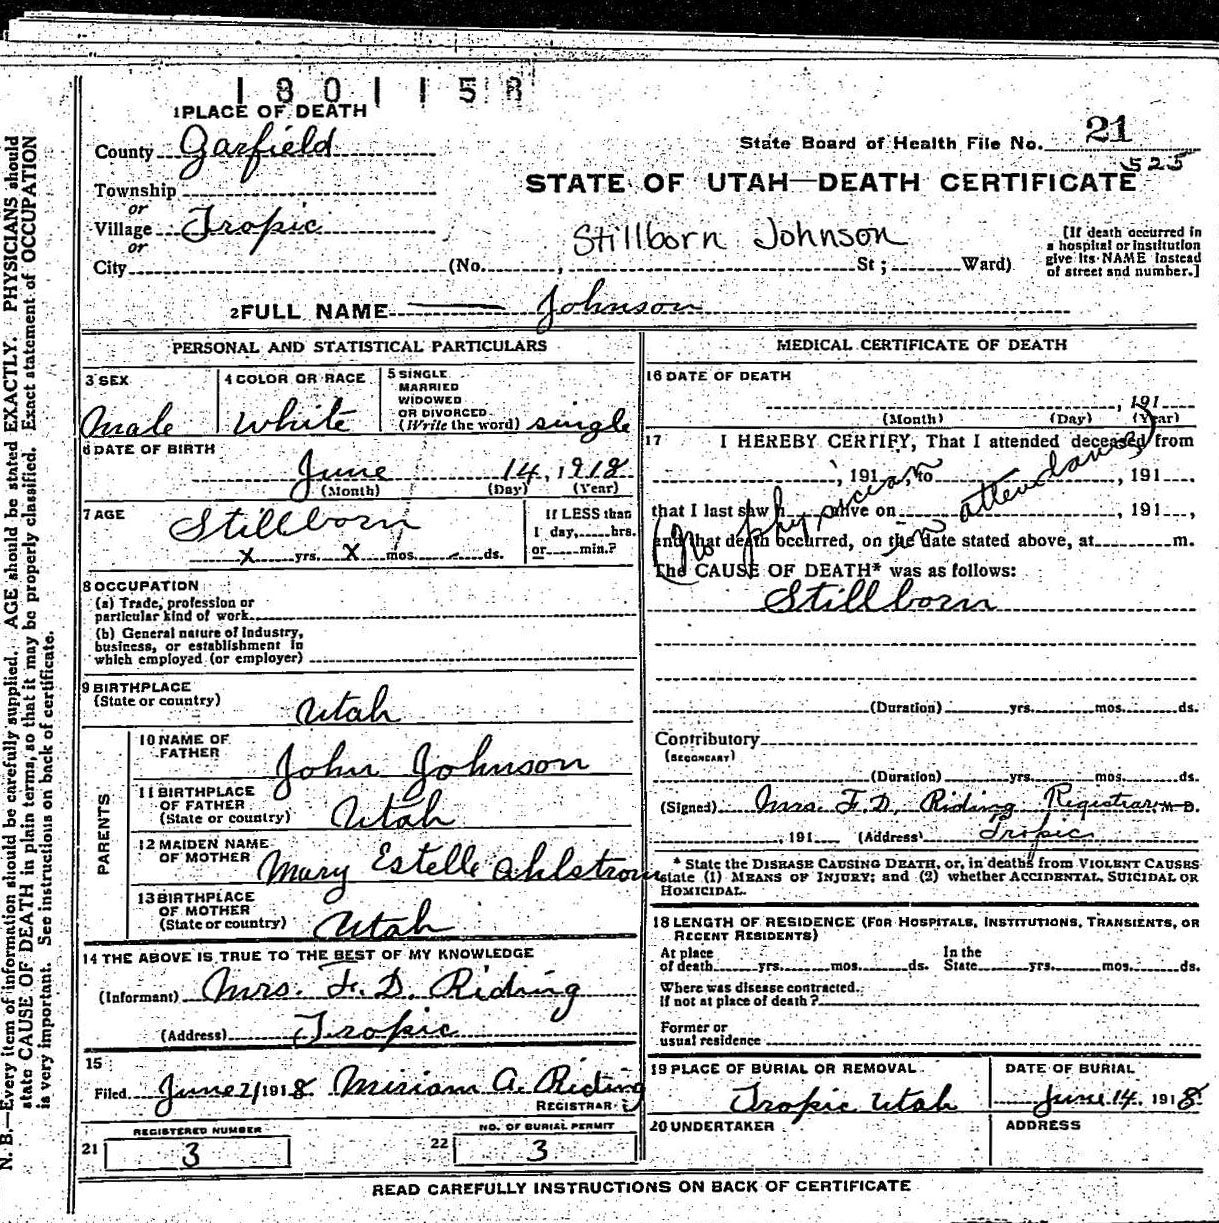 1801158
1 PLACE OF DEATH
County Garfield
State Board of Health File No. 21
525
Township
or
STATE OF UTAH—DEATH CERTIFICATE
Village Tropic
or
Stillborn Johnson
City (No. , St ; Ward)
[If death occurred in
a hospital or institution
give its NAME instead
of street and number.]
2 FULL NAME Johnson
PERSONAL AND STATISTICAL PARTICULARS
3 SEX
Male
4 COLOR OR RACE
White
5 SINGLE
MARRIED
WIDOWED
OR DIVORCED
(Write the word) single
6 DATE OF BIRTH
June 14, 1918
(Month) (Day) (Year)
7 AGE
Stillborn
X yrs. X mos. - ds.
If LESS than
1 day, hrs.
or min.?
8 OCCUPATION
(a) Trade, profession or
particular kind of work
(b) General nature of Industry,
business, or establishment in
which employed (or employer)
9 BIRTHPLACE
(State or country) Utah
PARENTS
10 NAME OF
FATHER John Johnson
11 BIRTHPLACE
OF FATHER
(State or country) Utah
12 MAIDEN NAME
OF MOTHER Mary Estelle Ahlstrom
13 BIRTHPLACE
OF MOTHER
(State or country) Utah
14 THE ABOVE IS TRUE TO THE BEST OF MY KNOWLEDGE
(Informant) Mrs. F. D. Riding
(Address) Tropic
15
Filed June 21 1918 Miriam A. Riding
REGISTRAR
REGISTERED NUMBER
21 3
NO. OF BURIAL PERMIT
22 3
MEDICAL CERTIFICATE OF DEATH
16 DATE OF DEATH
, 191
(Month) (Day) (Year)
17 I HEREBY CERTIFY, That I attended deceased from
, 191 , to , 191 ,
that I last saw h alive on , 191 ,
and that death occurred, on the date stated above, at m.
(No physician in attendance)
The CAUSE OF DEATH* was as follows:
Stillborn
(Duration) yrs. mos. ds.
Contributory
(SECONDARY)
(Duration) yrs. mos. ds.
(Signed) Mrs. F. D. Riding Registrar, M. D.
, 191 (Address) Tropic
* State the DISEASE CAUSING DEATH, or, in deaths from VIOLENT CAUSES
state (1) MEANS OF INJURY; and (2) whether ACCIDENTAL, SUICIDAL OR
HOMICIDAL.
18 LENGTH OF RESIDENCE (FOR HOSPITALS, INSTITUTIONS, TRANSIENTS, OR
RECENT RESIDENTS)
At place
of death yrs. mos. ds.
In the
State yrs. mos. ds.
Where was disease contracted.
If not at place of death?
Former or
usual residence
19 PLACE OF BURIAL OR REMOVAL
Tropic Utah
DATE OF BURIAL
June 14. 1918
20 UNDERTAKER
ADDRESS
READ CAREFULLY INSTRUCTIONS ON BACK OF CERTIFICATE
N. B.—Every item of information should be carefully supplied. AGE should be stated EXACTLY. PHYSICIANS should
state CAUSE OF DEATH in plain terms, so that it may be properly classified. Exact statement of OCCUPATION
is very important. See instructions on back of certificate.